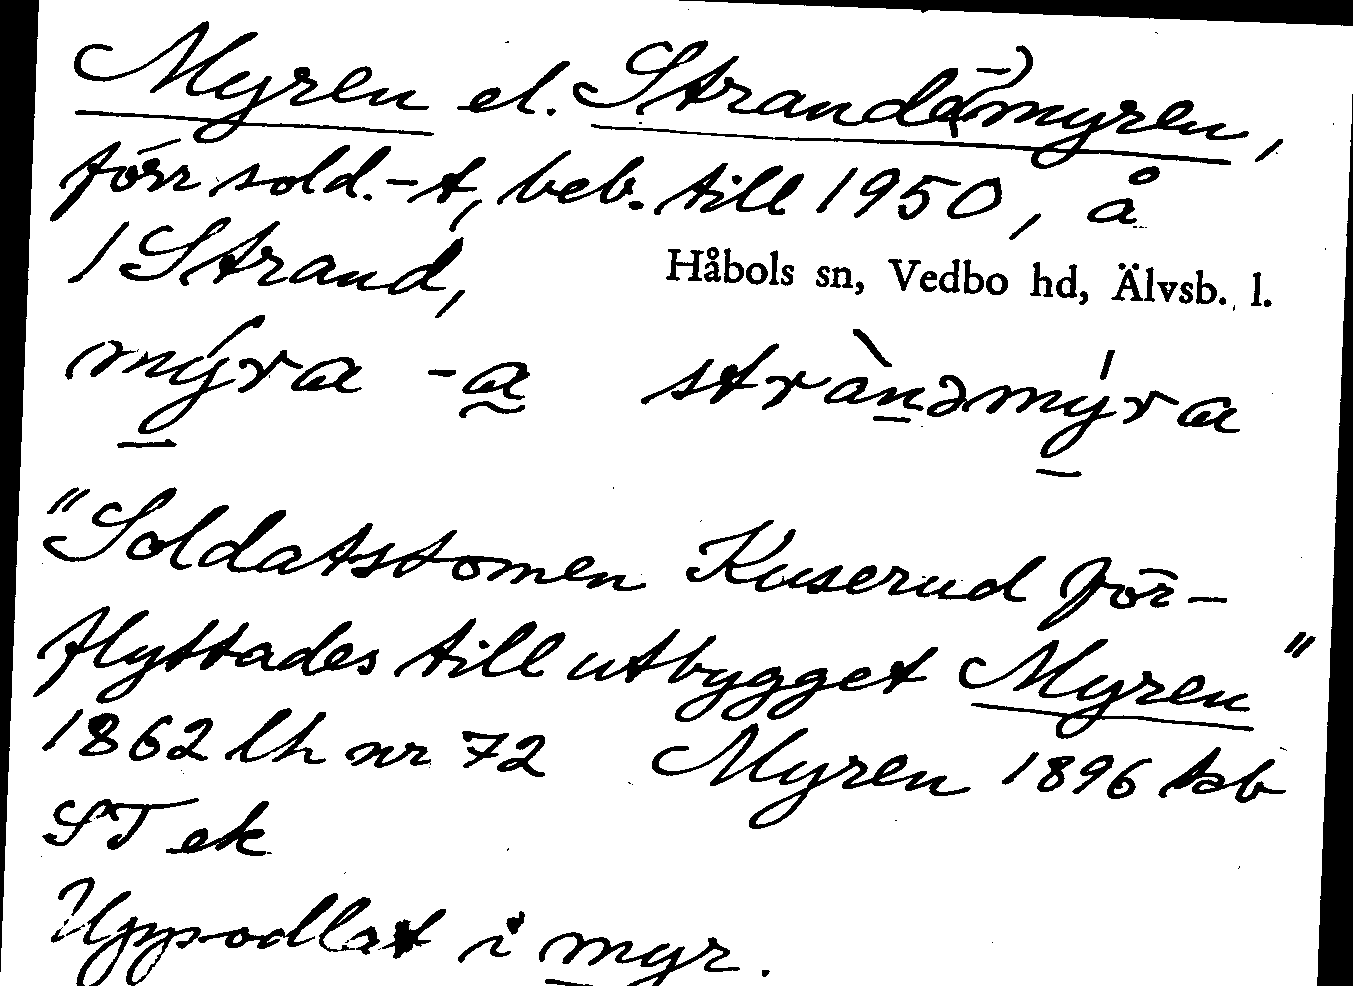 Myren el. Strande(-)myren,
förr sold.-t, beb. till 1950, å
1 Strand, Håbols sn, Vedbo hd, Älvsb. l.
mýra -a strànəmýra
"Soldatstomen Kuserud för-
flyttades till utbygget Myren"
1862 lh nr 72 Myren 1896 tsb
ST ek
Uppodlat i myr.